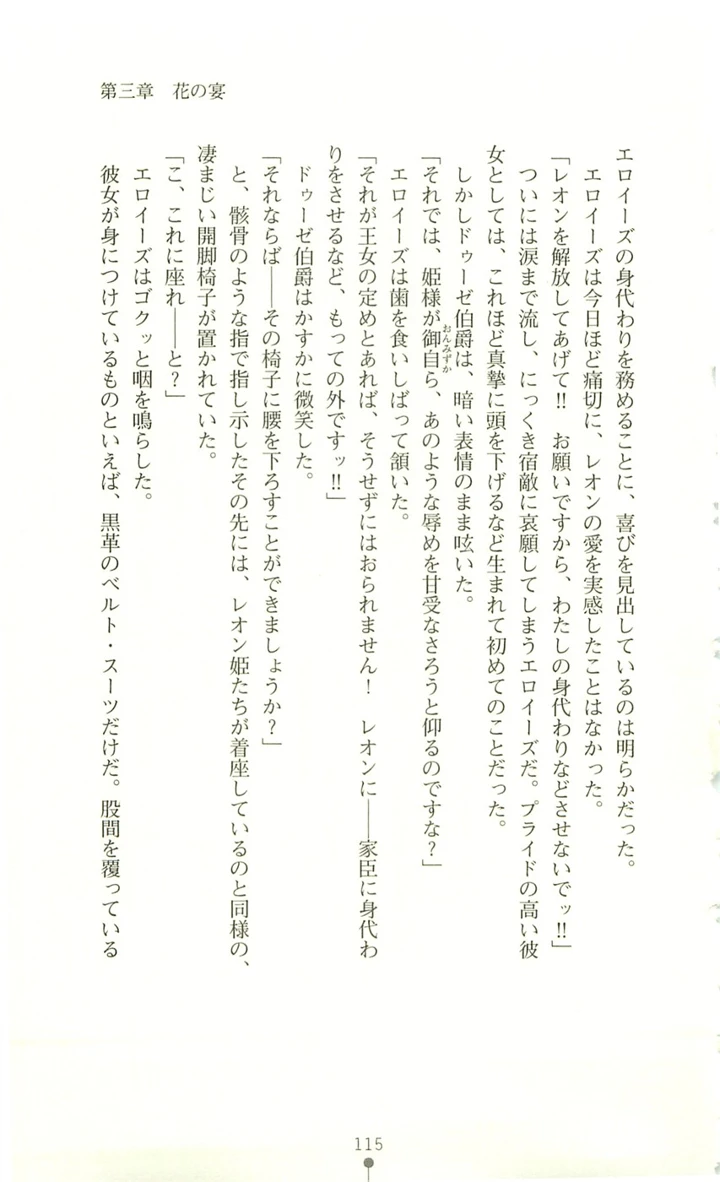 第三章　花の宴
エロイーズの身代わりを務めることに、喜びを見出しているのは明らかだった。
エロイーズは今日ほど痛切に、レオンの愛を実感したことはなかった。
「レオンを解放してあげて!!　お願いですから、わたしの身代わりなどさせないでッ!!」
ついには涙まで流し、にっくき宿敵に哀願してしまうエロイーズだ。プライドの高い彼
女としては、これほど真摯に頭を下げるなど生まれて初めてのことだった。
しかしドゥーゼ伯爵は、暗い表情のまま呟いた。
「それでは、姫様が御自ら、あのような辱めを甘受なさろうと仰るのですな？」
おんみずか
エロイーズは歯を食いしばって頷いた。
「それが王女の定めとあれば、そうせずにはおられません！　レオンに――家臣に身代わ
りをさせるなど、もっての外ですッ!!」
ドゥーゼ伯爵はかすかに微笑した。
「それならば――その椅子に腰を下ろすことができましょうか？」
と、骸骨のような指で指し示したその先には、レオン姫たちが着座しているのと同様の、
凄まじい開脚椅子が置かれていた。
「こ、これに座れ――と？」
エロイーズはゴクッと咽を鳴らした。
彼女が身につけているものといえば、黒革のベルト・スーツだけだ。股間を覆っている
115